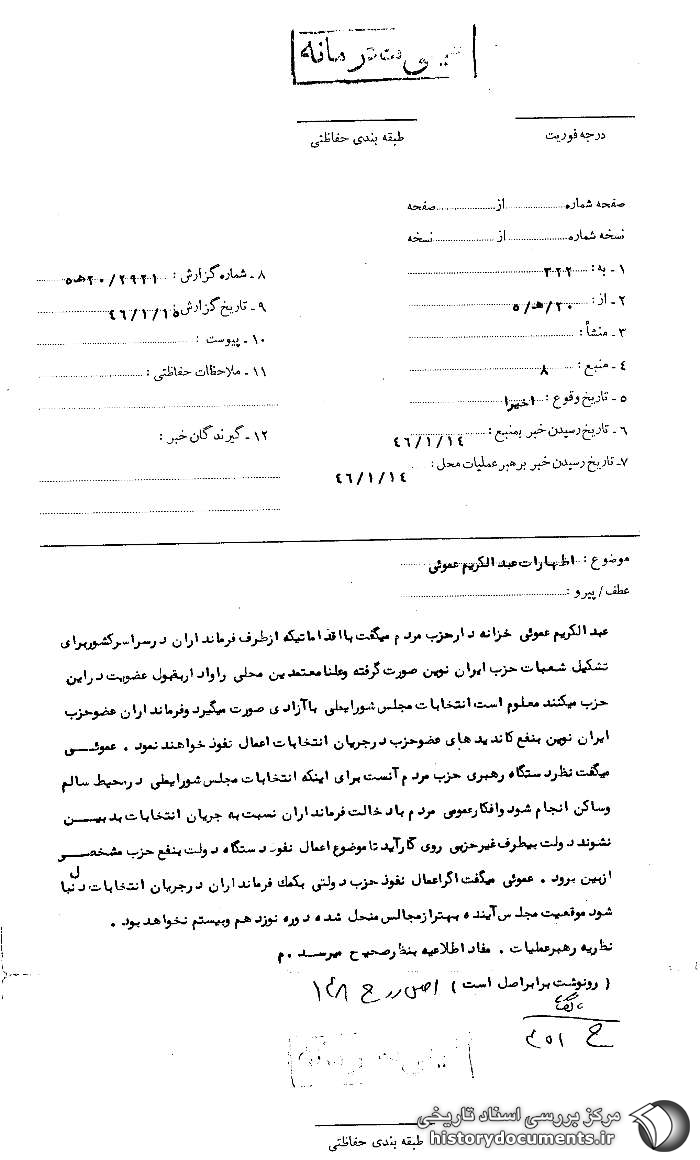 درجه فوریت
طبقه بندی حفاظتی
صفحه شماره از صفحه
نسخه شماره از نسخه
۱ـ به: ۳۲۲
۲ـ از: ۲۰/هـ/۵
۳ـ منشأ:
۴ـ منبع: ۸
۵ـ تاریخ وقوع: اخیرا
۶ـ تاریخ رسیدن خبر بمنبع: ۴۶/۱/۱۴
۷ـ تاریخ رسیدن خبر برهبر عملیات محل: ۴۶/۱/۱۴
۸ـ شماره گزارش: ۲۹۲۱/۲۰هـ۵
۹ـ تاریخ گزارش: ۴۶/۱/۱۵
۱۰ـ پیوست:
۱۱ـ ملاحظات حفاظتی:
۱۲ـ گیرندگان خبر:
موضوع: اظهارات عبدالکریم عموئی
عطف/پیرو:
عبدالکریم عموئی خزانه دار حزب مردم میگفت با اقداماتیکه ازطرف فرمانداران در سراسر کشور برای
تشکیل شعبات حزب ایران نوین صورت گرفته وعلنا معتمدین محلی را وادار بقبول عضویت در این
حزب میکنند معلوم است انتخابات مجلس شورایملی با آزادی صورت میگیرد وفرمانداران عضو حزب
ایران نوین بنفع کاندیدهای عضوحزب در جریان انتخابات اعمال نفوذ خواهند نمود . عموئی
میگفت نظر دستگاه رهبری حزب مردم آنست برای اینکه انتخابات مجلس شورایملی در محیط سالم
وساکن انجام شود وافکار عمومی مردم با دخالت فرمانداران نسبت به جریان انتخابات بدبین
نشوند دولت بیطرف غیرحزبی روی کارآید تا موضوع اعمال نفوذ دستگاه دولت بنفع حزب مشخصی
ازبین برود . عموئی میگفت اگر اعمال نفوذ حزب دولتی بکمک فرمانداران در جریان انتخابات دنبال
شود موقعیت مجلس آینده بهتر از مجالس منحل شده دوره نوزدهم وبیستم نخواهد بود .
نظریه رهبرعملیات . مفاد اطلاعیه بنظر صحیح میرسد .م
( رونوشت برابر اصل است ) اصل در ح ۱۴۸
ح ۴۵۱
طبقه بندی حفاظتی
مرکز بررسی اسناد تاریخی
historydocuments.ir